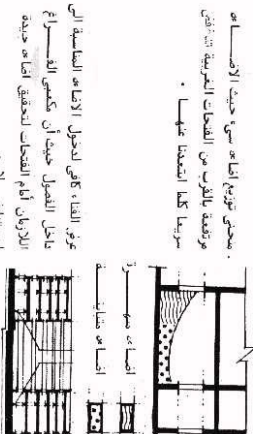 . منحنى توزيع اضاءه سيء حيث الاضــاءه
مرتفعة بالقرب من الفتحات الغربية تنخفض
سريعا كلما ابتعدنا عنهــا .
اضاءه مبهــرة
اضاءه متباينــة
عرض الفناء كافى لدخول الاضاءه المناسبة الى
داخل الفصول حيث أن مكعبى الفــراغ
اللازمان أمام الفتحات لتحقيق اضاءه جيدة